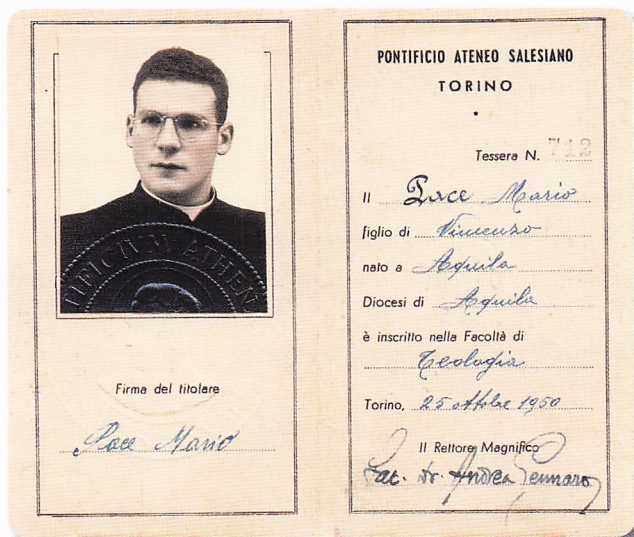 TIFICIUM ATHEN
Firma del titolare
Pace Mario
PONTIFICIO ATENEO SALESIANO
TORINO
Tessera N. 712
Il Pace Mario
figlio di Vincenzo
nato a Aquila
Diocesi di Aquila
è inscritto nella Facoltà di
Teologia
Torino, 25 ottobre 1950
Il Rettore Magnifico
Sac. Dr. Andrea Gennaro